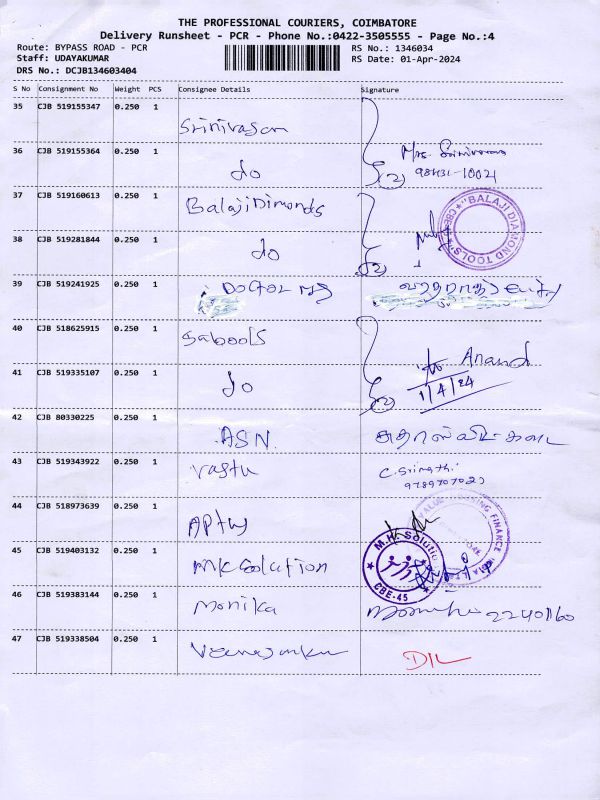 THE PROFESSIONAL COURIERS, COIMBATORE
Delivery Runsheet - PCR - Phone No.:0422-3505555 - Page No.:4
Route: BYPASS ROAD - PCR
RS No.: 1346034
Staff: UDAYAKUMAR
RS Date: 01-Apr-2024
DRS No.: DCJB134603404
S No Consignment No Weight PCS Consignee Details Signature
35 CJB 519155347 0.250 1
Srinivasan
36 CJB 519155364 0.250 1
do
Mrs. Srinivasan
98431-10021
(2)
37 CJB 519160613 0.250 1
Balaji Dimonds
"BALAJI DIAMOND TOOLS" CBE
38 CJB 519281844 0.250 1
do
(2)
39 CJB 519241925 0.250 1
Doctor
40 CJB 518625915 0.250 1
Sabools
41 CJB 519335107 0.250 1
do
Anand
1/4/24
(2)
42 CJB 80330225 0.250 1
ASN
43 CJB 519343922 0.250 1
Vastu
C. Srimathi
9789707023
44 CJB 518973639 0.250 1
Aptus
45 CJB 519403132 0.250 1
MK Solution
CBE-45
46 CJB 519383144 0.250 1
Monika
2240160
47 CJB 519338504 0.250 1
D/L